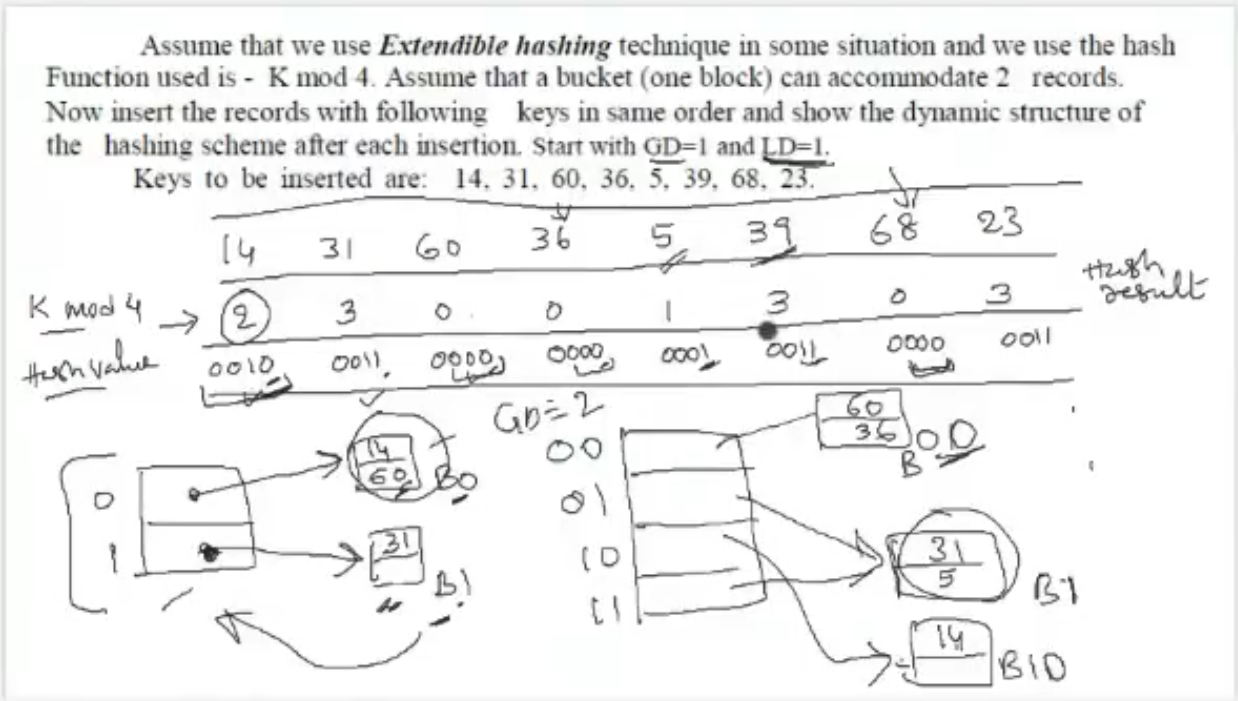 Assume that we use Extendible hashing technique in some situation and we use the hash
Function used is - K mod 4. Assume that a bucket (one block) can accommodate 2 records.
Now insert the records with following keys in same order and show the dynamic structure of
the hashing scheme after each insertion. Start with GD=1 and LD=1.
Keys to be inserted are: 14, 31, 60, 36, 5, 39, 68, 23.
14 31 60 36 5 39 68 23
K mod 4 → 2 3 0 0 1 3 0 3 Hash result
Hash value 0010 0011 0000 0000 0001 0011 0000 0011
GD=2
0
1
14
60
B0
31
B1
00
01
10
11
60
36
B00
31
5
B1
14
B10